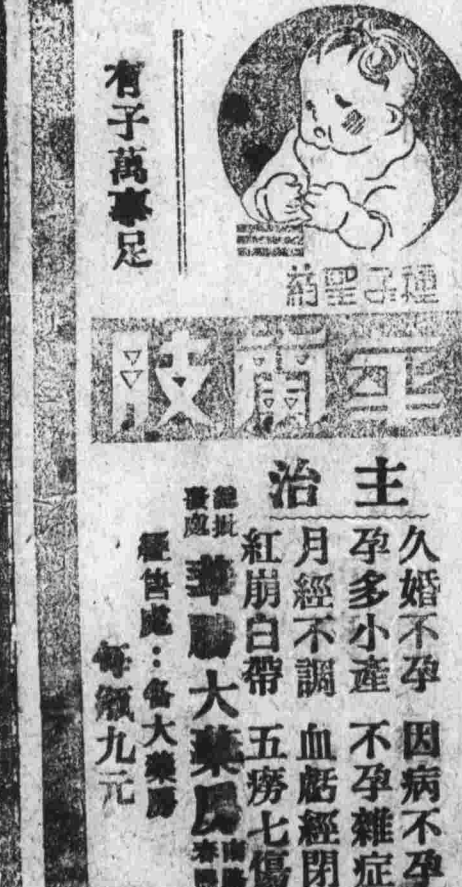 有子萬事足
種子聖葯
主治
久婚不孕 因病不孕
孕多小產 不孕雜症
月經不調 血虧經閉
紅崩白帶 五癆七傷
總批發處
大藥房
經售處：各大藥房
每瓶九元